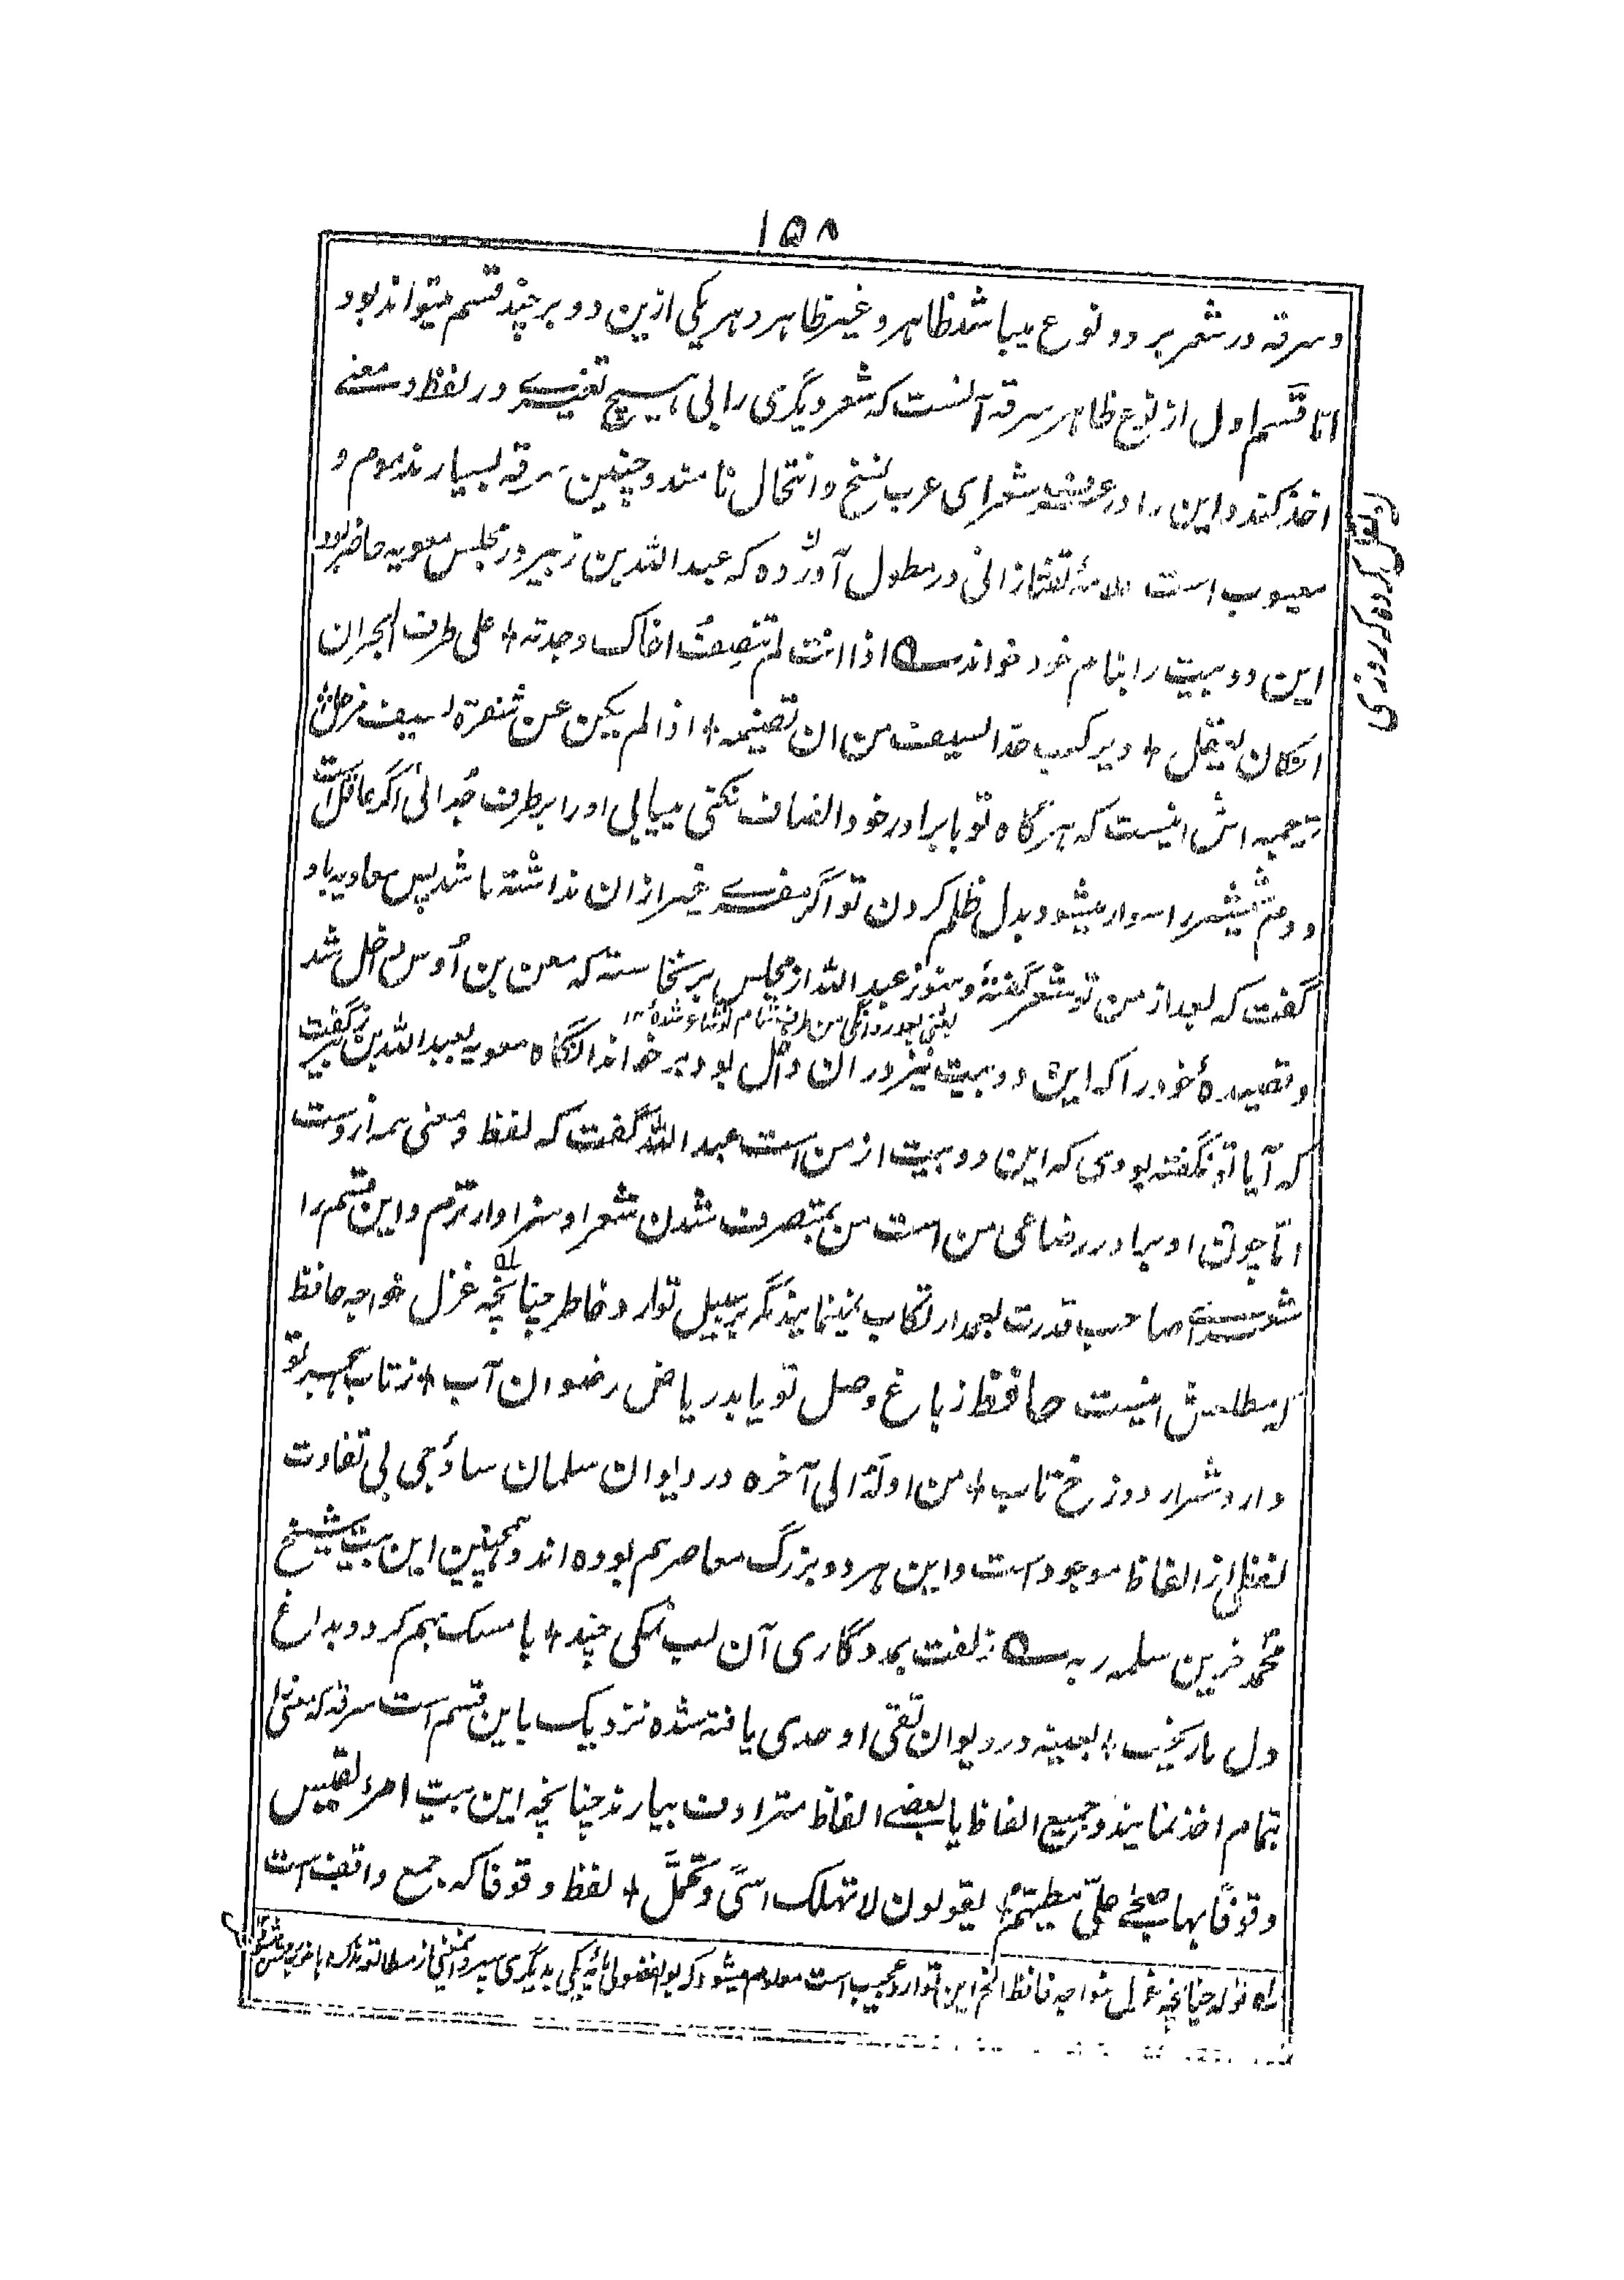 ۱۵۸
و سرقه در شعر بر دو نوع میباشد ظاهر و غیر ظاهر و هر یکی ازین دو بر چند قسم میتواند بود
اما قسم اول از نوع ظاهر سرقه آنست که شعر دیگری را بی هیچ تغیرے در لفظ و معنے
اخذ کند و این را در عرف شعرای عرب نسخ و انتحال نامند و چنین سرقه بسیار مذموم و
معیوب است علامهٔ تفتازانی در مطول آورده که عبد الله بن زبیر در مجلس معویه حاضر بود
این دو بیت را بنام خود خواند ے اذا انت لم تنصف اخاک وجدته + علی طرف الهجران
ان کان یعقل + ویرکب حد السیف من ان تضیمه + اذا لم یکن عن شفرة السیف مزحل
ترجمه اش اینست که هرگاه تو با برادر خود انصاف نکنی مییابی او را بر طرف جدائی اگر عاقل است
و دم شمشیر را سوار میشود بدل ظلم کردن تو اگر مفرے غیر از ان نداشته باشد پس معاویه باو
گفت که بعد از من تو شعر گفتهٔ و هنوز عبد الله از مجلس برنخاسته که معن بن اوس داخل شد
یعنی بعد روانگی من طرف شام تو شاعر شدهٔ ۱۲
و قصیدهٔ خود را که این دو بیت نیز در ان داخل بود بر خواند انگاه معویه بعبد الله بن زبیر گفت
که آیا تو نگفته بودی که این دو بیت از من است عبد الله گفت که لفظ و معنی همه از وست
اما چون او برادر رضاعی من است من بمتصرف شدن شعر او سزاوار ترم و این قسم را
شعراے صاحب قدرت بعمد ارتکاب نمینمایند مگر بر سبیل توارد خاطر چنانچه غزل خواجه حافظ
که مطلعش اینست حافظ ز باغ وصل تو یابد ریاض رضوان آب + ز تاب هجر تو
دارد شرار دوزخ تاب + من اوله الی آخره در دیوان سلمان ساوجی بی تفاوت
لفظی از الفاظ موجود است و این هر دو بزرگ معاصر هم بوده اند و همچنین این بیت شیخ
محمد حزین سلمه ربه ے زلفت بمددگاری آن لب نمکی چند + با مشک بهم کرد و بداغ
دل ما ریخت + بعینه در دیوان تقی اوحدی یافته شده نزدیک باین قسم است سرقه که معنی را
بتمام اخذ نمایند و جمیع الفاظ یا بعضے الفاظ مترادف بیارند چنانچه این بیت امرء القیس
وقوفاً بها صحبی علیّ مطیهم + یقولون لا تهلک اسی و تجمّل + لفظ وقوفا که جمع واقف است
له قوله چنانچه غزل خواجه حافظ الخ این توارد عجیب است معلوم میشود که